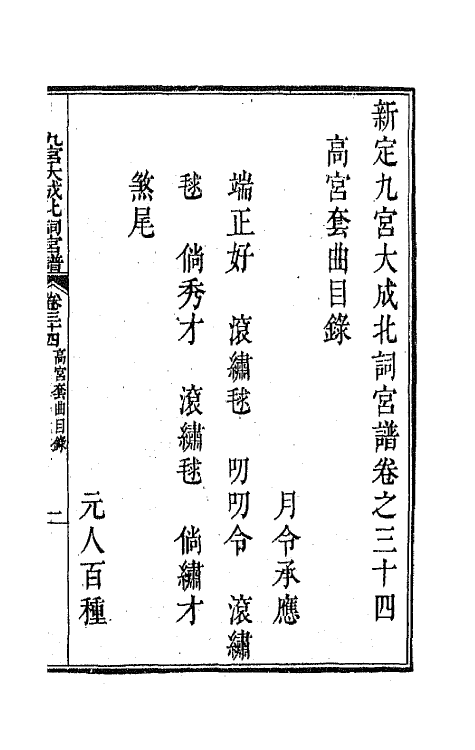 新定九宮大成北詞宮譜卷之三十四
高宮套曲目錄
月令承應
端正好　滾繡毬　叨叨令　滾繡
毬　倘秀才　滾繡毬　倘繡才
煞尾
元人百種
九宮大成北詞宮譜　卷三十四　高宮套曲目錄　二